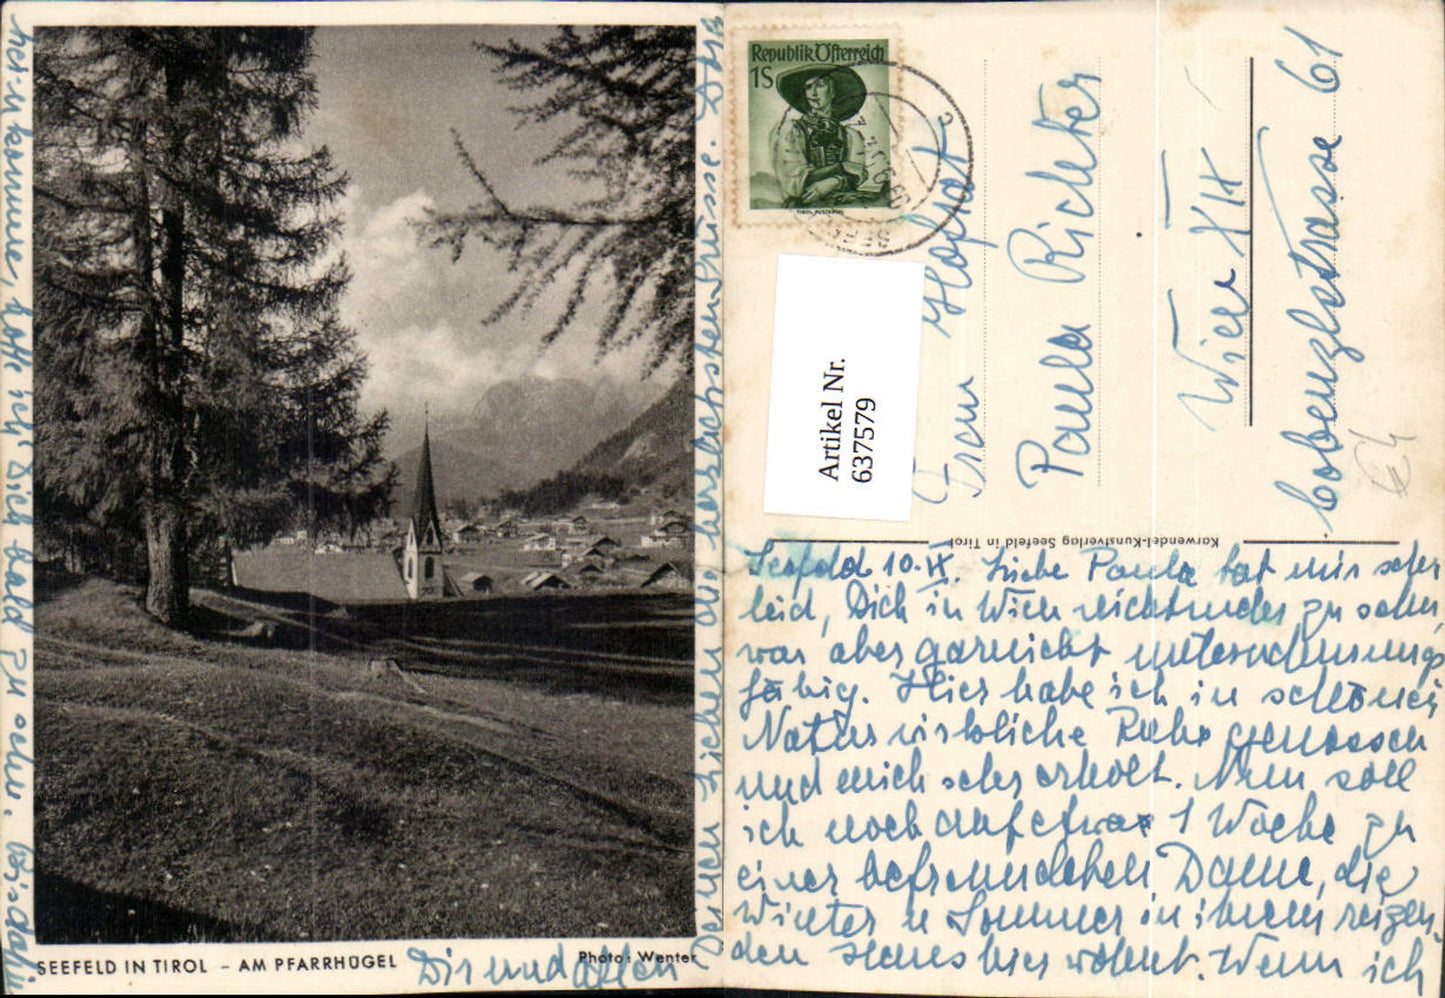 SEEFELD IN TIROL – AM PFARRHÜGEL
Photo: Wenter
Republik Österreich
1S
Artikel Nr.
637579
Frau Hofrat
Paula Richter
Wien XIX
Cobenzlstrasse 61
Karwendel-Kunstverlag Seefeld in Tirol
Seefeld 10.IX. Liebe Paula hat mir sehr
leid, Dich in Wien nicht mehr zu sehen,
war aber garnicht unternehmungs
fähig. Hier habe ich in schöner
Natur wirkliche Ruhe genossen
und mich sehr erholt. Nun soll
ich noch auf etwa 1 Woche zu
einer befreundeten Dame, die
Winter u Sommer in ihrem reizen-
den Haus hier wohnt. Wenn ich
herunterkomme, hoffe ich Dich bald zu sehn.
Dir und allen
Deinen Lieben